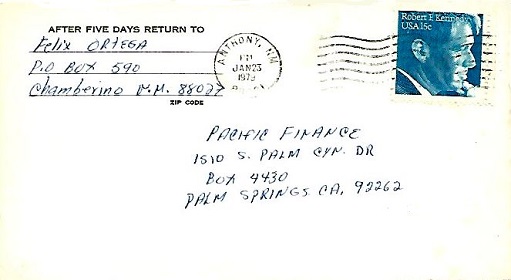 AFTER FIVE DAYS RETURN TO
Felix ORTEGA
P.O BOX 590
Chamberino N.M. 88027
ZIP CODE
ANTHONY, NM
PM
JAN 23
1979
Robert F. Kennedy
USA 15c
PACIFIC FINANCE
1510 S. PALM CYN. DR
BOX 4430
PALM SPRINGS CA, 92262